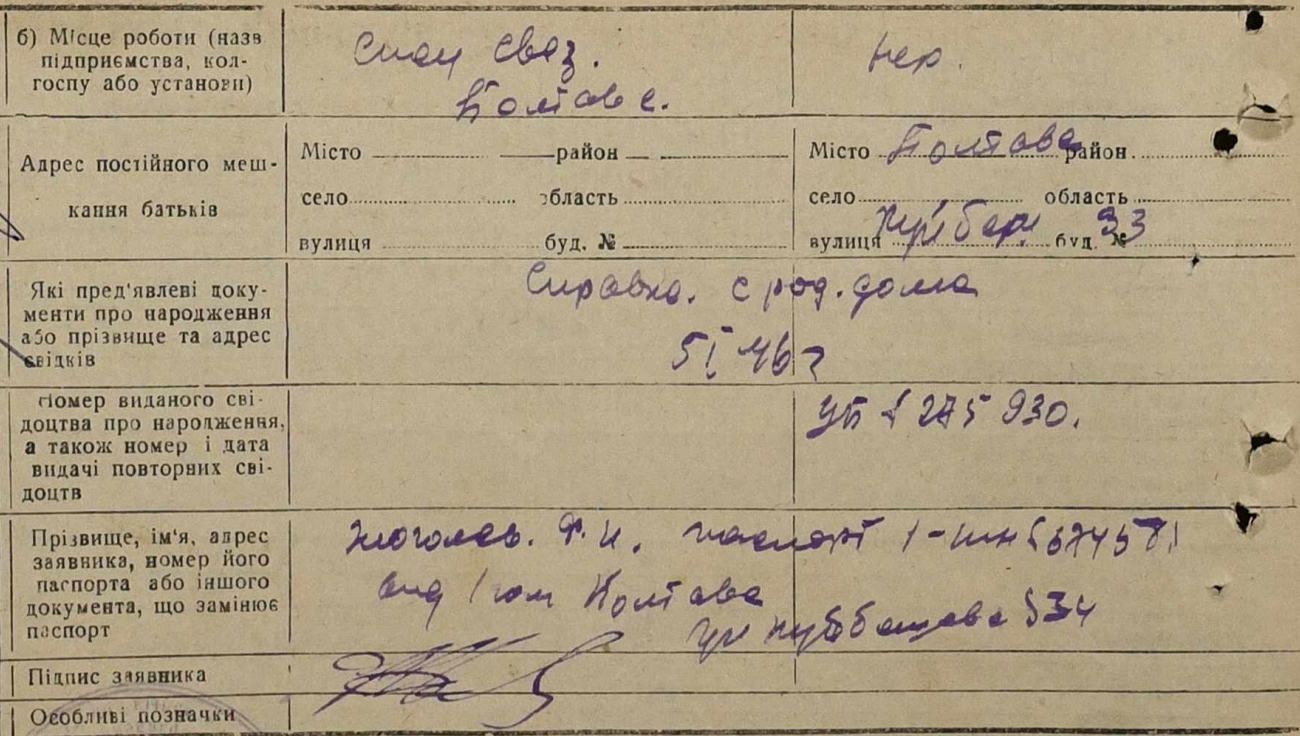 б) Місце роботи (назв
підприємства, кол-
госпу або установи)
Полтаве.
Адрес постійного меш-
кання батьків
Місто район
село область
вулиця буд. №
Місто Полтава район
село область
вулиця буд. № 33
Які пред'явлеві доку-
менти про народження
або прізвище та адрес
свідків
Справка. с род. дома
5/I 46 г
Номер виданого сві-
доцтва про народження,
а також номер і дата
видачі повторних сві-
доцтв
275 930.
Прізвище, ім'я, адрес
заявника, номер його
паспорта або іншого
документа, що замінює
паспорт
паспорт
Полтава
34
Підпис заявника
Особливі позначки